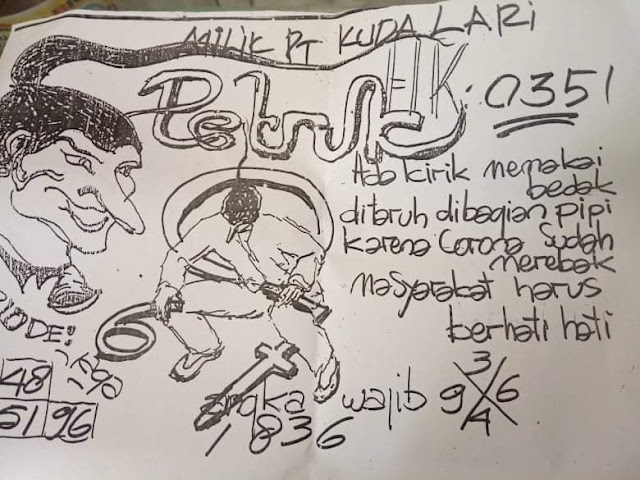 MILIK PT KUDA LARI
Petruk
HK. 0351
Ada kirik memakai
bedak
ditaruh dibagian pipi
karena Corona Sudah
merebak
Masyarakat harus
berhati hati
ODE:
48
51 96
6
angka wajib
1836
3
9 X 6
4